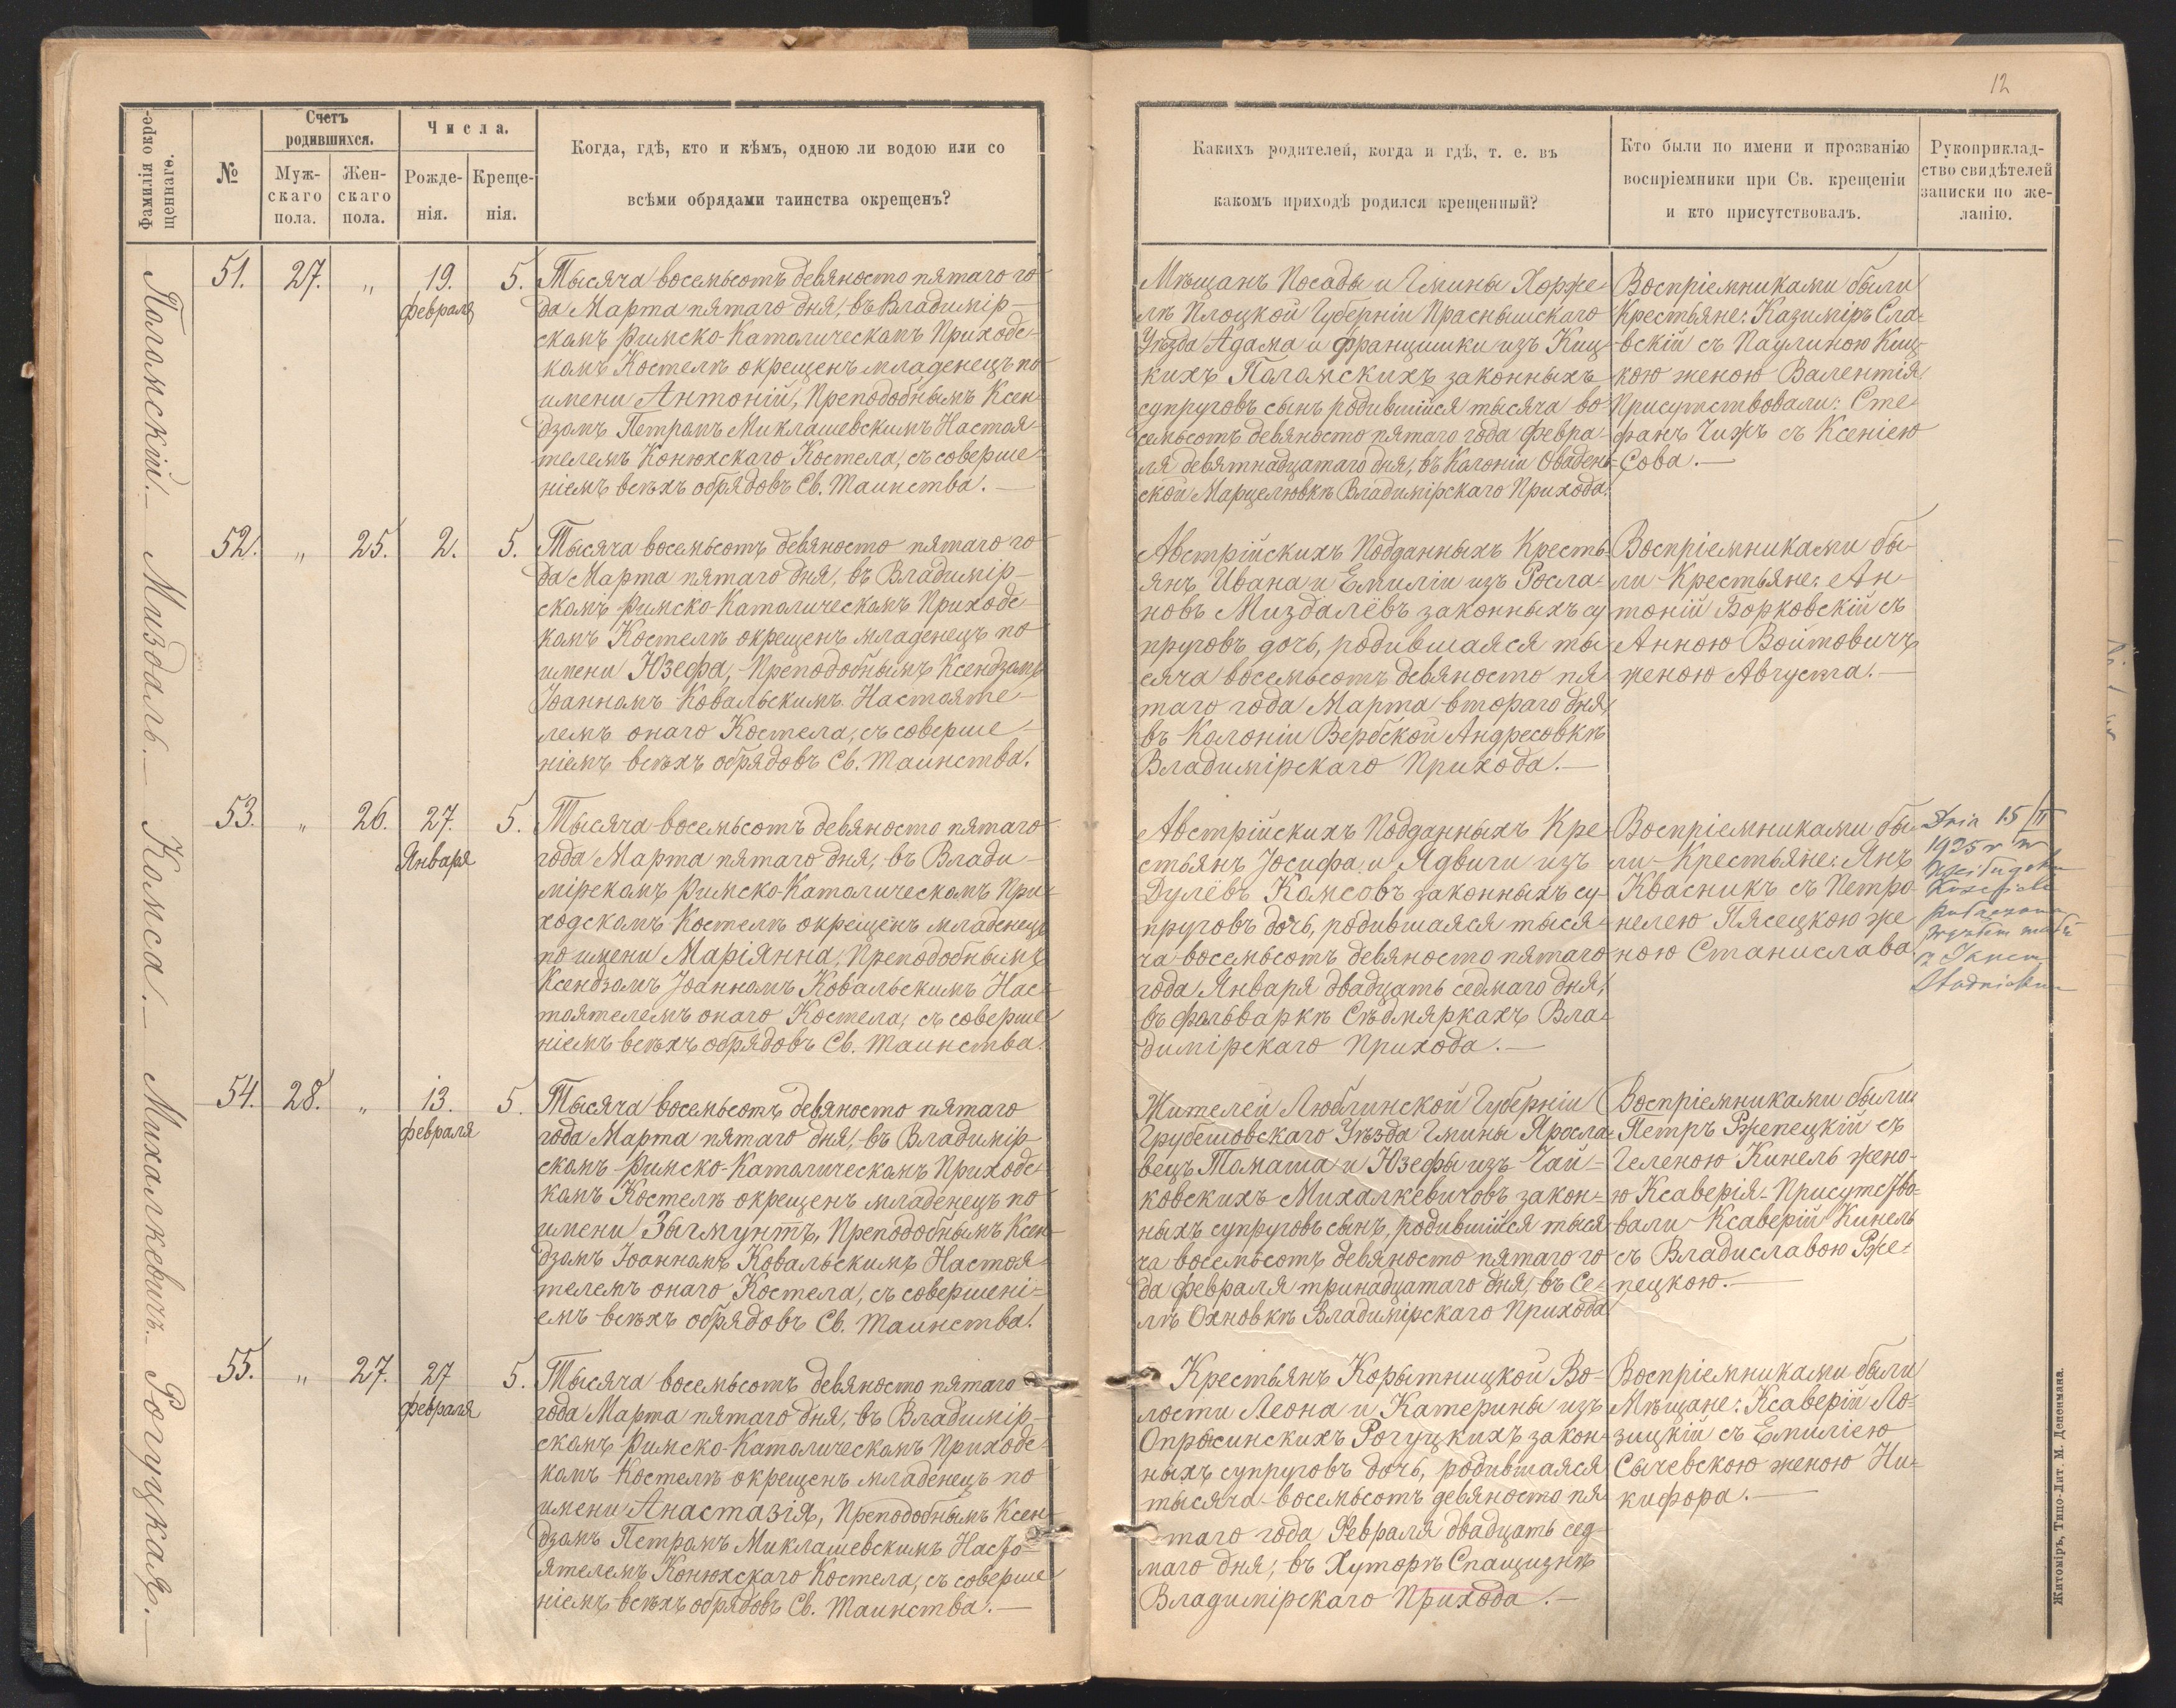 12
Фамилія окре-
щеннаго.
№
Счетъ
родившихся.
Муж-
скаго
пола.
Жен-
скаго
пола.
Числа.
Рожде-
нія.
Креще-
нія.
Когда, гдѣ, кто и кѣмъ, одною ли водою или со
всѣми обрядами таинства окрещенъ?
Какихъ родителей, когда и гдѣ, т. е. въ
какомъ приходѣ родился крещенный?
Кто были по имени и прозванію
воспріемники при Св. крещеніи
и кто присутствовалъ.
Рукоприклад-
ство свидѣтелей
записки по же-
ланію.
Паломскій.—
51.
27.
"
19.
Февраля
5.
Тысяча восемьсотъ девяносто пятаго го-
да Марта пятаго дня, въ Владимір-
скомъ Римско-Католическомъ Приходс-
комъ Костелѣ окрещенъ младенецъ по
имени Антоній, Преподобнымъ Ксен-
дзомъ Петромъ Миклашевскимъ Настоя-
телемъ Конюхскаго Костела, съ соверше-
ніемъ всѣхъ обрядовъ Св. Таинства.—
Мѣщанъ Посады и Гмины Хорже-
лѣ Плоцкой Губерніи Праснышскаго
Уѣзда Адама и Францишки изъ Киц-
кихъ Паломскихъ законныхъ
супруговъ сынъ, родившійся тысяча во-
семьсотъ девяносто пятаго года Февра-
ля девятнадцатаго дня, въ Колоніи Оваден-
ской Марцелювкѣ Владимірскаго Прихода.
Воспріемниками были
Крестьяне: Казиміръ Сла-
вскій съ Паулиною Киц-
кою женою Валентія.
Присутствовали: Сте-
фанъ Чижъ съ Ксеніею
Сова.—
Миздаль.—
52.
"
25.
2.
5.
Тысяча восемьсотъ девяносто пятаго го-
да Марта пятаго дня, въ Владимір-
скомъ Римско-Католическомъ Приходс-
комъ Костелѣ окрещенъ младенецъ по
имени Юзефа, Преподобнымъ Ксендзомъ
Іоанномъ Ковальскимъ Настояте-
лемъ онаго Костела, съ соверше-
ніемъ всѣхъ обрядовъ Св. Таинства.
Австрійскихъ Подданныхъ Кресть-
янъ Ивана и Емиліи изъ Росла-
новъ Миздалёвъ законныхъ су-
пруговъ дочь, родившаяся ты-
сяча восемьсотъ девяносто пя-
таго года Марта втораго дня,
въ Колоніи Вербской Андресовкѣ
Владимірскаго Прихода.—
Воспріемниками бы-
ли Крестьяне: Ан-
тоній Борковскій съ
Анною Войтовичъ
женою Августа.—
Комса.—
53.
"
26.
27.
Января
5.
Тысяча восемьсотъ девяносто пятаго
года Марта пятаго дня, въ Влади-
мірскомъ Римско-Католическомъ При-
ходскомъ Костелѣ окрещенъ младенецъ
по имени Маріянна, Преподобнымъ
Ксендзомъ Іоанномъ Ковальскимъ Нас-
тоятелемъ онаго Костела, съ соверше-
ніемъ всѣхъ обрядовъ Св. Таинства.
Австрійскихъ Подданныхъ Кре-
стьянъ Іосифа и Ядвиги изъ
Дулёвъ Комсовъ законныхъ су-
пруговъ дочь, родившаяся тыся-
ча восемьсотъ девяносто пятаго
года Января двадцать седьмаго дня,
въ фольваркѣ Сѣдмяркахъ Вла-
димірскаго Прихода.—
Воспріемниками бы-
ли Крестьяне: Янъ
Квасникъ съ Петро-
нелею Пясецкою же-
ною Станислава.
Dnia 15/II
1925 r w
z Janem
Михалкевичъ.—
54.
28.
"
13.
Февраля
5.
Тысяча восемьсотъ девяносто пятаго
года Марта пятаго дня, въ Владимір-
скомъ Римско-Католическомъ Приходс-
комъ Костелѣ окрещенъ младенецъ по
имени Зыгмунтъ, Преподобнымъ Ксен-
дзомъ Іоанномъ Ковальскимъ Настоя-
телемъ онаго Костела, съ совершені-
емъ всѣхъ обрядовъ Св. Таинства.
Жителей Люблинской Губерніи
Грубешовскаго Уѣзда Гмины Яросла-
вецъ Томаша и Юзефы изъ Чай-
ковскихъ Михалкевичовъ закон-
ныхъ супруговъ сынъ, родившійся тыся-
ча восемьсотъ девяносто пятаго го-
да Февраля тринадцатаго дня, въ Се-
лѣ Охновкѣ Владимірскаго Прихода
Воспріемниками были
Петръ Ржепецкій съ
Геленою Кинель жено-
ю Ксаверія. Присутство-
вали Ксаверій Кинель
съ Владиславою Рже-
пецкою.—
Рогуцкая.—
55.
"
27.
27
Февраля
5.
Тысяча восемьсотъ девяносто пятаго
года Марта пятаго дня, въ Владимір-
скомъ Римско-Католическомъ Приходс-
комъ Костелѣ окрещенъ младенецъ по
имени Анастазія, Преподобнымъ Ксен-
дзомъ Петромъ Миклашевскимъ Насто-
ятелемъ Конюхскаго Костела, съ соверше-
ніемъ всѣхъ обрядовъ Св. Таинства.—
Крестьянъ Корытницкой Во-
лости Леона и Катерины изъ
Опросинскихъ Рогуцкихъ закон-
ныхъ супруговъ дочь, родившаяся
тысяча восемьсотъ девяносто пя-
таго года Февраля двадцать сед-
маго дня, въ Хуторѣ Спащизнѣ
Владимірскаго Прихода.—
Воспріемниками были
Мѣщане: Ксаверій Ло-
зицкій съ Емиліею
Сычевскою женою Ни-
кифора.—
Житоміръ, Типо-Лит. М. Дененмана.